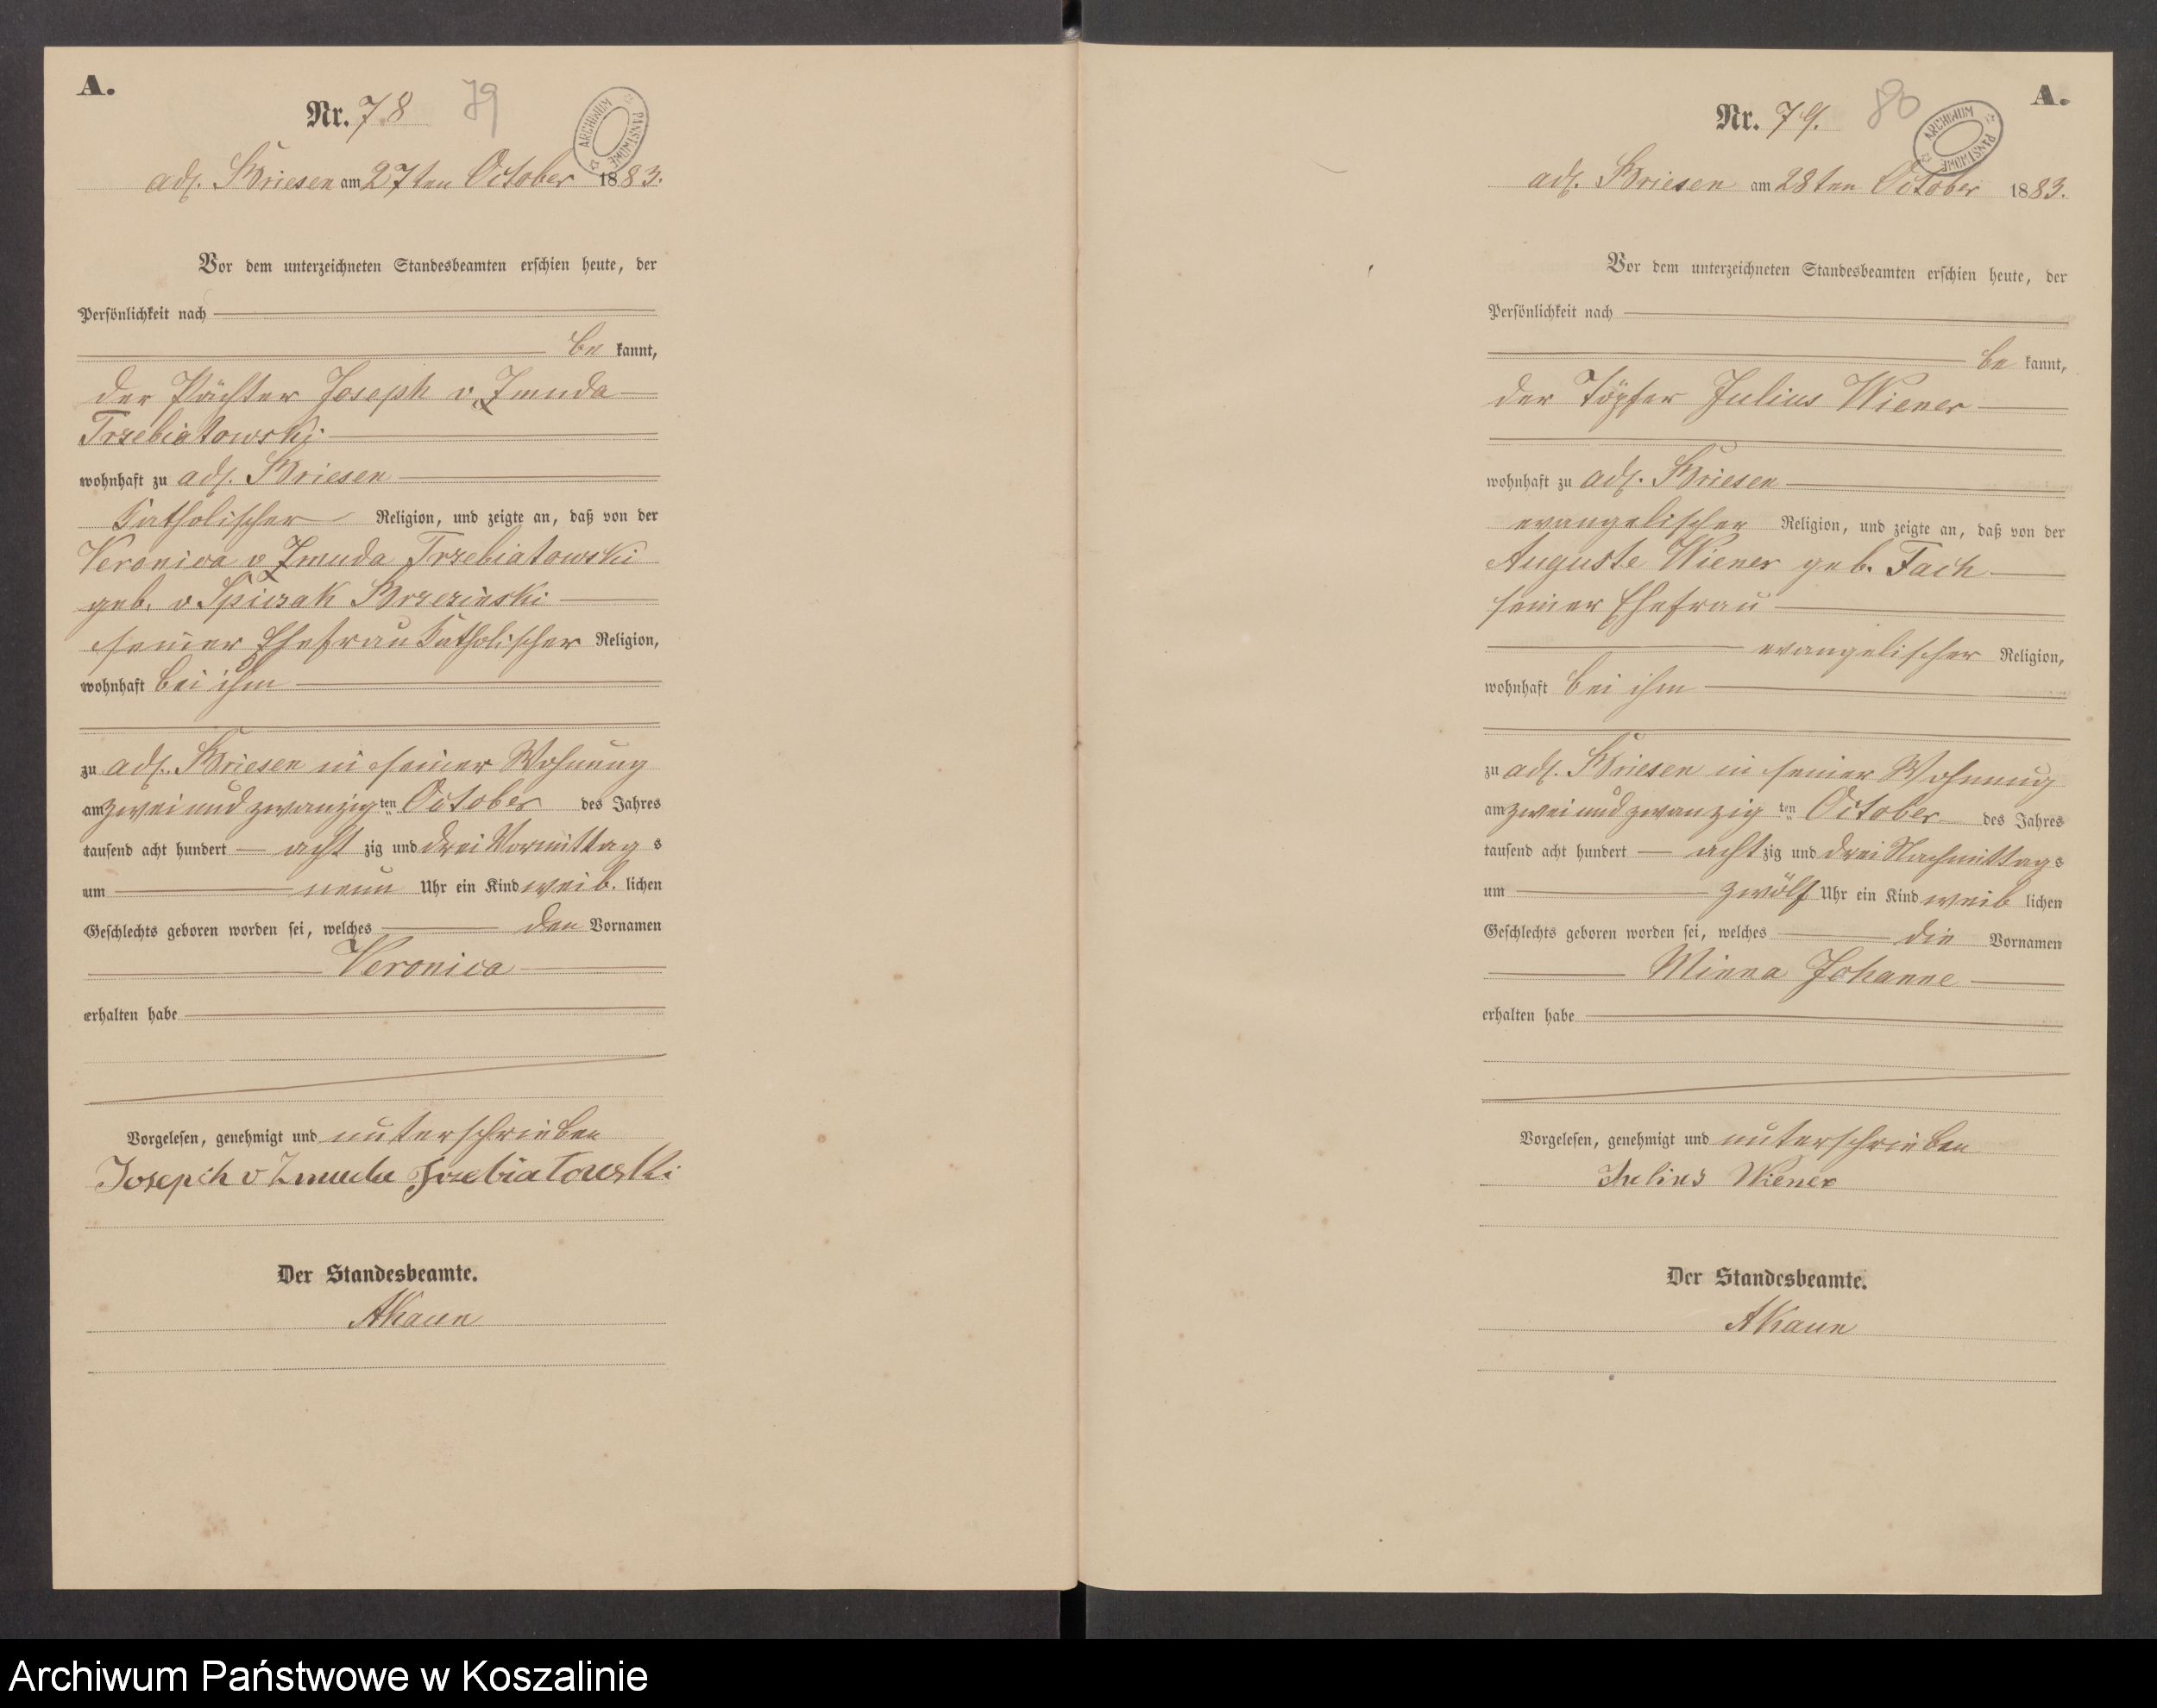 A.
Nr. 78 79
ARCHIWUM PAŃSTWOWE
adl. Briesen am 27ten October 1883.
Vor dem unterzeichneten Standesbeamten erschien heute, der
Persönlichkeit nach
be kannt,
der Pächter Joseph v. Zmuda
Trzebiatowski
wohnhaft zu adl. Briesen
katholischer Religion, und zeigte an, daß von der
Veronica v Zmuda Trzebiatowski
geb. v Spiczak Brzezinski
seiner Ehefrau katholischer Religion,
wohnhaft bei ihm
zu adl. Briesen in seiner Wohnung
am zwei und zwanzig ten October des Jahres
tausend acht hundert acht zig und drei Vormittag s
um neun Uhr ein Kind weib. lichen
Geschlechts geboren worden sei, welches den Vornamen
Veronica
erhalten habe
Vorgelesen, genehmigt und unterschrieben
Joseph v Zmuda Trzebiatowski
Der Standesbeamte.
AKaun
A.
Nr. 79. 80
ARCHIWUM PAŃSTWOWE
adl. Briesen am 28ten October 1883.
Vor dem unterzeichneten Standesbeamten erschien heute, der
Persönlichkeit nach
be kannt,
der Töpfer Julius Wiener
wohnhaft zu adl. Briesen
evangelischer Religion, und zeigte an, daß von der
Auguste Wiener geb. Fach
seiner Ehefrau
evangelischer Religion,
wohnhaft bei ihm
zu adl. Briesen in seiner Wohnung
am zwei und zwanzig ten October des Jahres
tausend acht hundert acht zig und drei Nachmittag s
um zwölf Uhr ein Kind weib lichen
Geschlechts geboren worden sei, welches die Vornamen
Minna Johanne
erhalten habe
Vorgelesen, genehmigt und unterschrieben
Julius Wiener
Der Standesbeamte.
AKaun
Archiwum Państwowe w Koszalinie